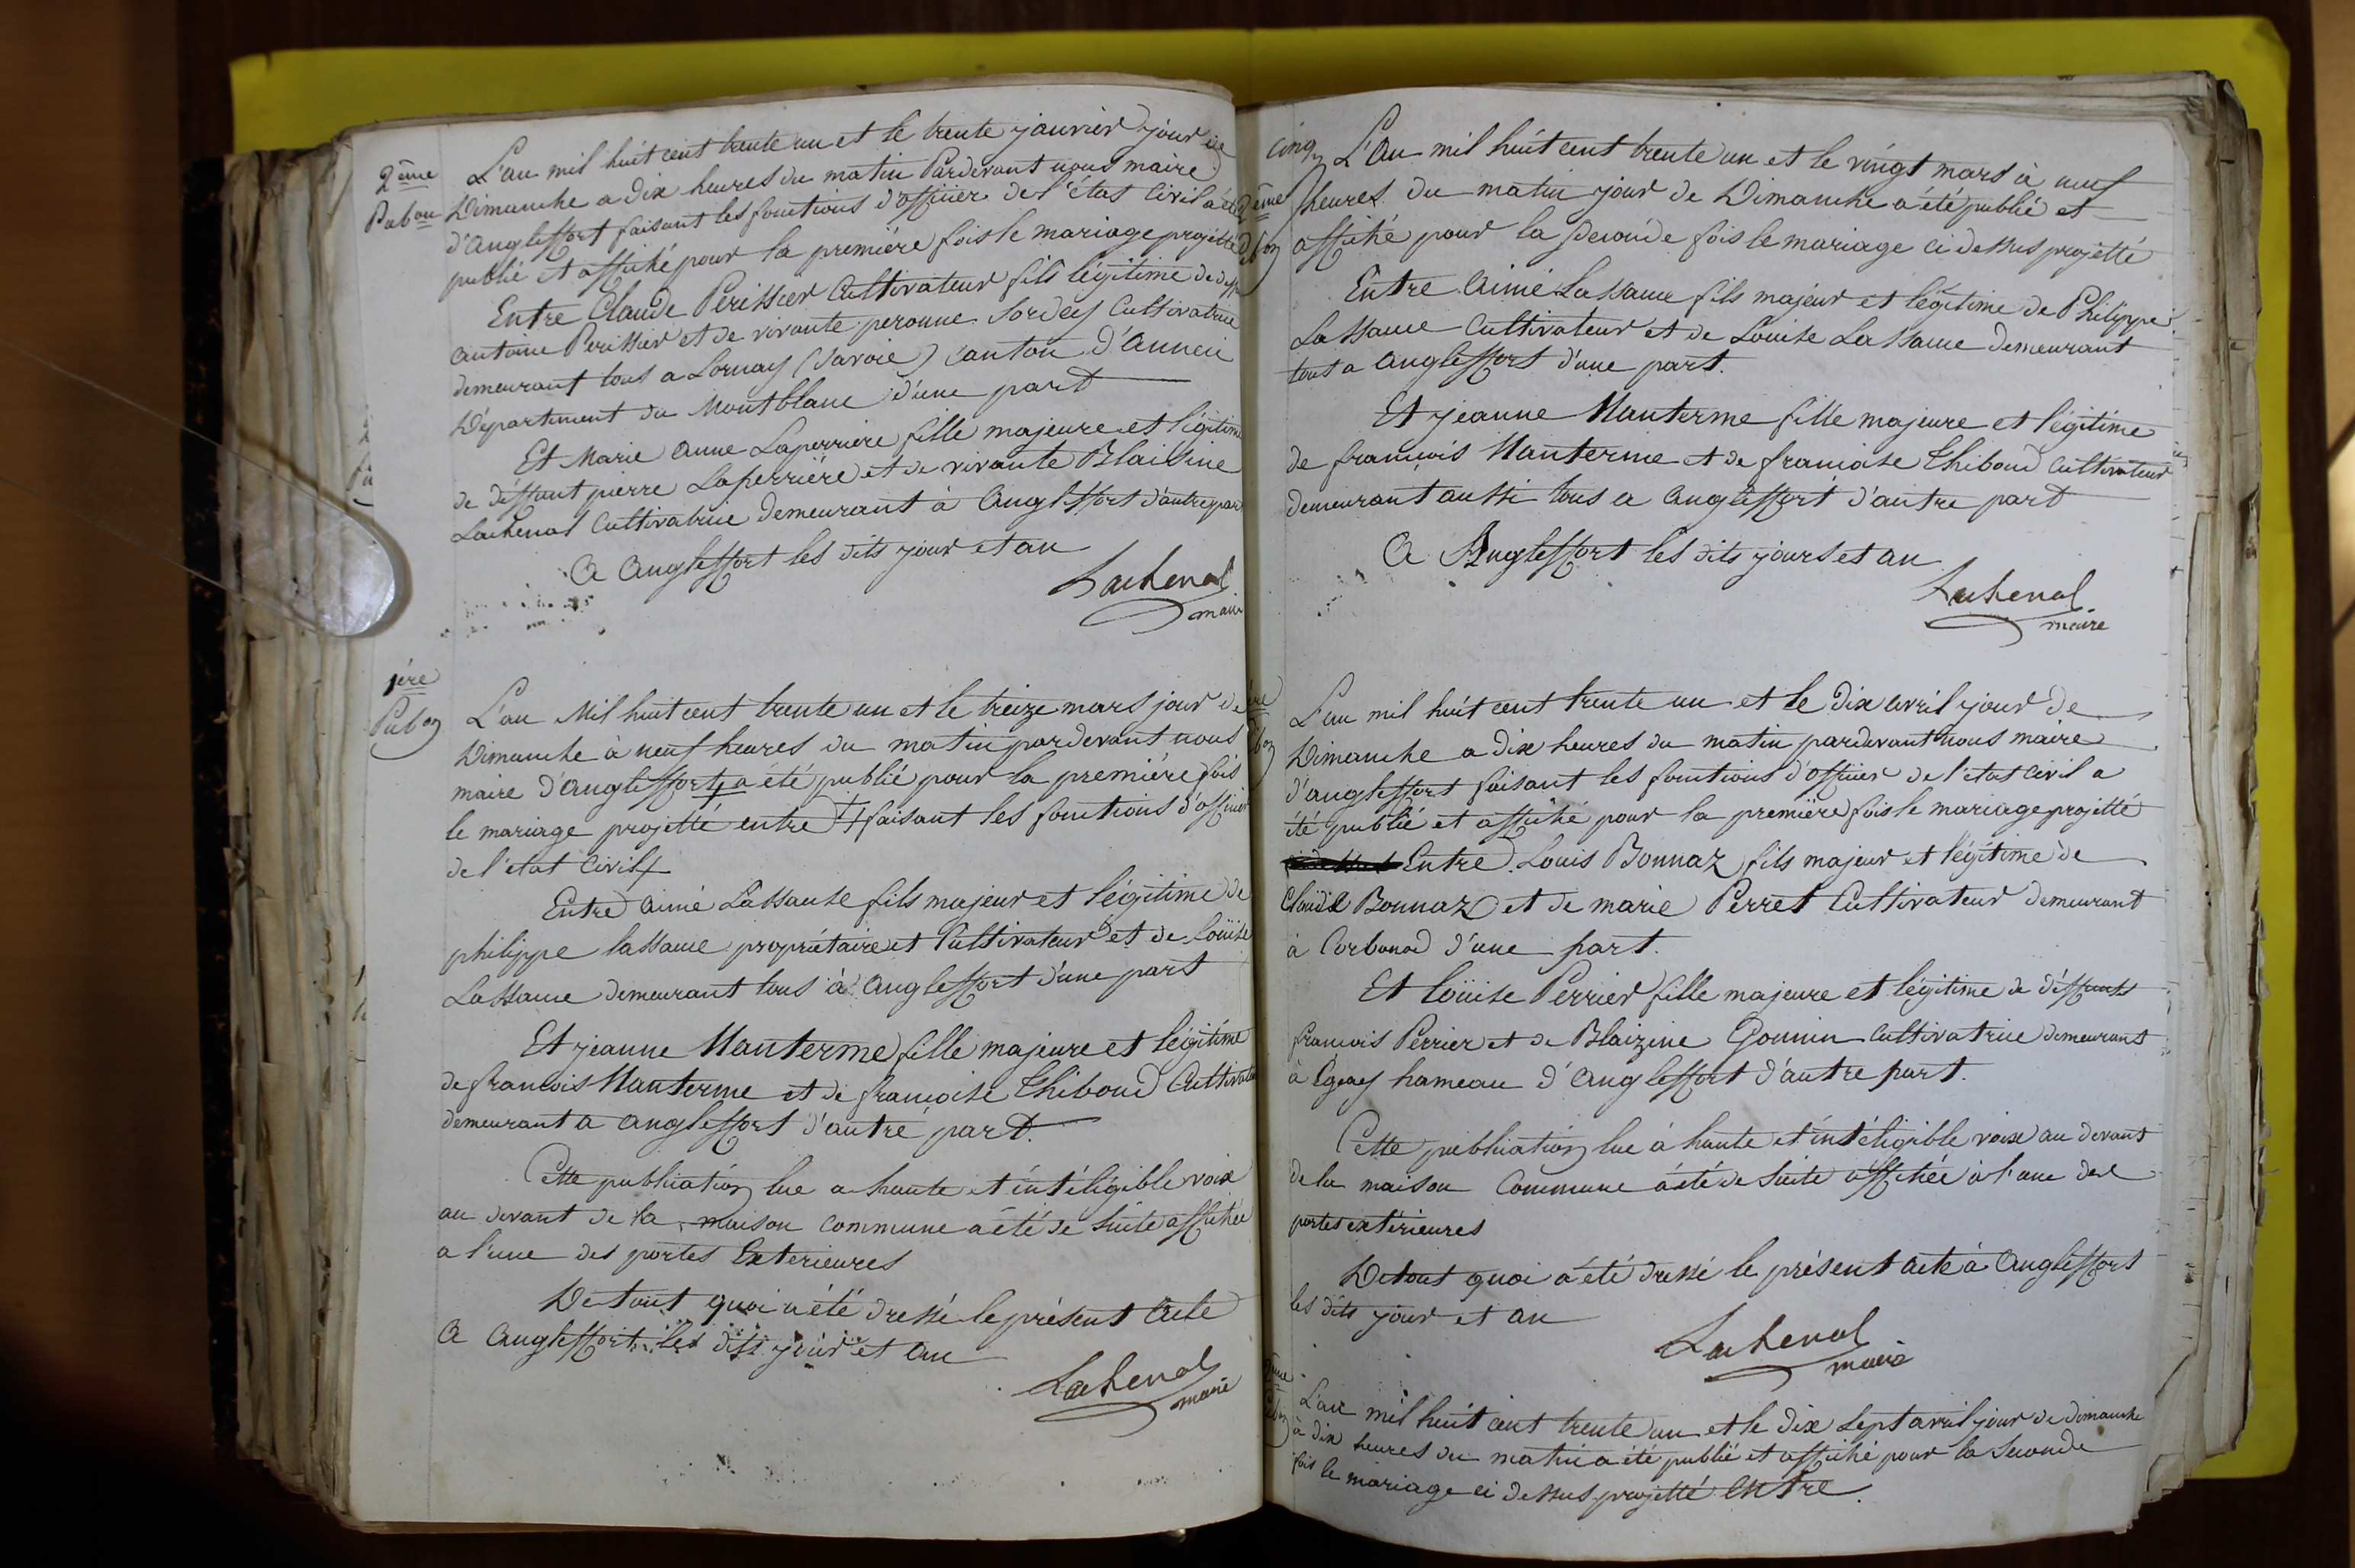 2ème
Pubon
L'an mil huit cent trente un et le trente janvier jour de
Dimanche a dix heures du matin Pardevant nous maire
d'Anglessort faisant les fonctions d'officier de l'état Civil a été
publié et affiché pour la première fois le mariage projetté
Entre Claude Perissier Cultivateur fils légitime de deff
antoine Perissier et de vivante peronne Sordey Cultivatrice
demeurant tous a Lornay (Savoie) Canton d'Anneci
Département du Montblanc d'une part
Et Marie anne Laperriere fille majeure et légitime
de déffunt pierre Laperriére et de vivante Blaisine
Lachenal Cultivatrice Demeurant à Anglessort d'autre part
A Anglessort les dits jour et an
Lachenal
maire
1ére
Pubon
L'an Mil huit cent trente un et le treize mars jour de
Dimanche à neuf heures du matin pardevant nous
maire d'Anglessort, a été publié pour la première fois
le mariage projetté entre faisant les fonctions d'officier
de l'etat Civil
Entre Aimé Lassause fils majeur et légitime de
philippe lassause propriétaire et Cultivateur et de Louïse
Lassause demeurant tous à Anglessort d'une part
Et jeanne Manterme fille majeure et légitime
de francois Manterme et de francoise Thiboud Cultivateur
demeurant a Anglessort d'autre part.
Cette publication lue a haute et intéligible voix
au devant de la maison commune a été de suite affichée
a l'une des portes Exterieures
De tout quoi a été dressé le présent Acte
A Anglessort les dits jour et an
Lachenal
maire
cinq
2ème
L'An mil huit cent trente un et le vingt mars à neuf
heures du matin jour de Dimanche a été publié et
affiché pour la seconde fois le mariage ci dessus projetté
Entre Aimé Lassause fils majeur et légitime de Philippe
Lassause Cultivateur et de Louise Lassause demeurant
tout a Anglessort d'une part.
Et jeanne Manterme fille majeure et légitime
de francois Manterme et de francoise Thiboud Cultivateur
demeurant aussi tous a Anglessort d'autre part
A Anglessort les dits jours et an
Lachenal
maire
L'an mil huit cent trente un et le Dix avril jour de
Dimanche a dix heures du matin pardevant nous maire
d'anglessort faisant les fonctions d'officier de l'etat civil a
été publié et affiché pour la première fois le mariage projetté
Entre Louis Bonnaz fils majeur et légitime de
Claude Bonnaz et de marie Perret Cultivateur demeurant
à Corbonod d'une part.
Et Loüise Perrier fille majeure et légitime de déffunt
francois Perrier et de Blaizine Gounin Cultivatrice demeurant
à hameau d'Anglessort d'autre part.
Cette publication lue à haute et intéligible voix au devant
de la maison Commune a été de suite affichée à l'une des
portes extérieures
De tout quoi a été dressé le présent acte à Anglessort
les dits jour et an
Lachenal
maire
L'an mil huit cent trente un et le dix sept avril jour de dimanche
à dix heures du matin a été publié et affiché pour la seconde
fois le mariage ci dessus projetté entre